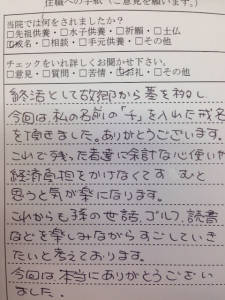 住職への手紙（ご意見を願います。）
当院では何をされましたか？
□先祖供養・□水子供養・□祈願・□土仏
☑戒名・□相談・□手元供養・□その他
チェックをいれ詳しくお聞かせ下さい。
□意見・□質問・□苦情・☑お礼・□その他
終活として故郷から墓を移し
今回は、私の名前の「チ」を入れた戒名
を頂きました。ありがとうございます。
これで残った者達に余計な心使いや
経済負担をかけなくてすむと
思うと気が楽になります。
これからも孫の世話、ゴルフ、読書
などを楽しみながらすごしていき
たいと考えております。
今回は本当にありがとうござい
ました。